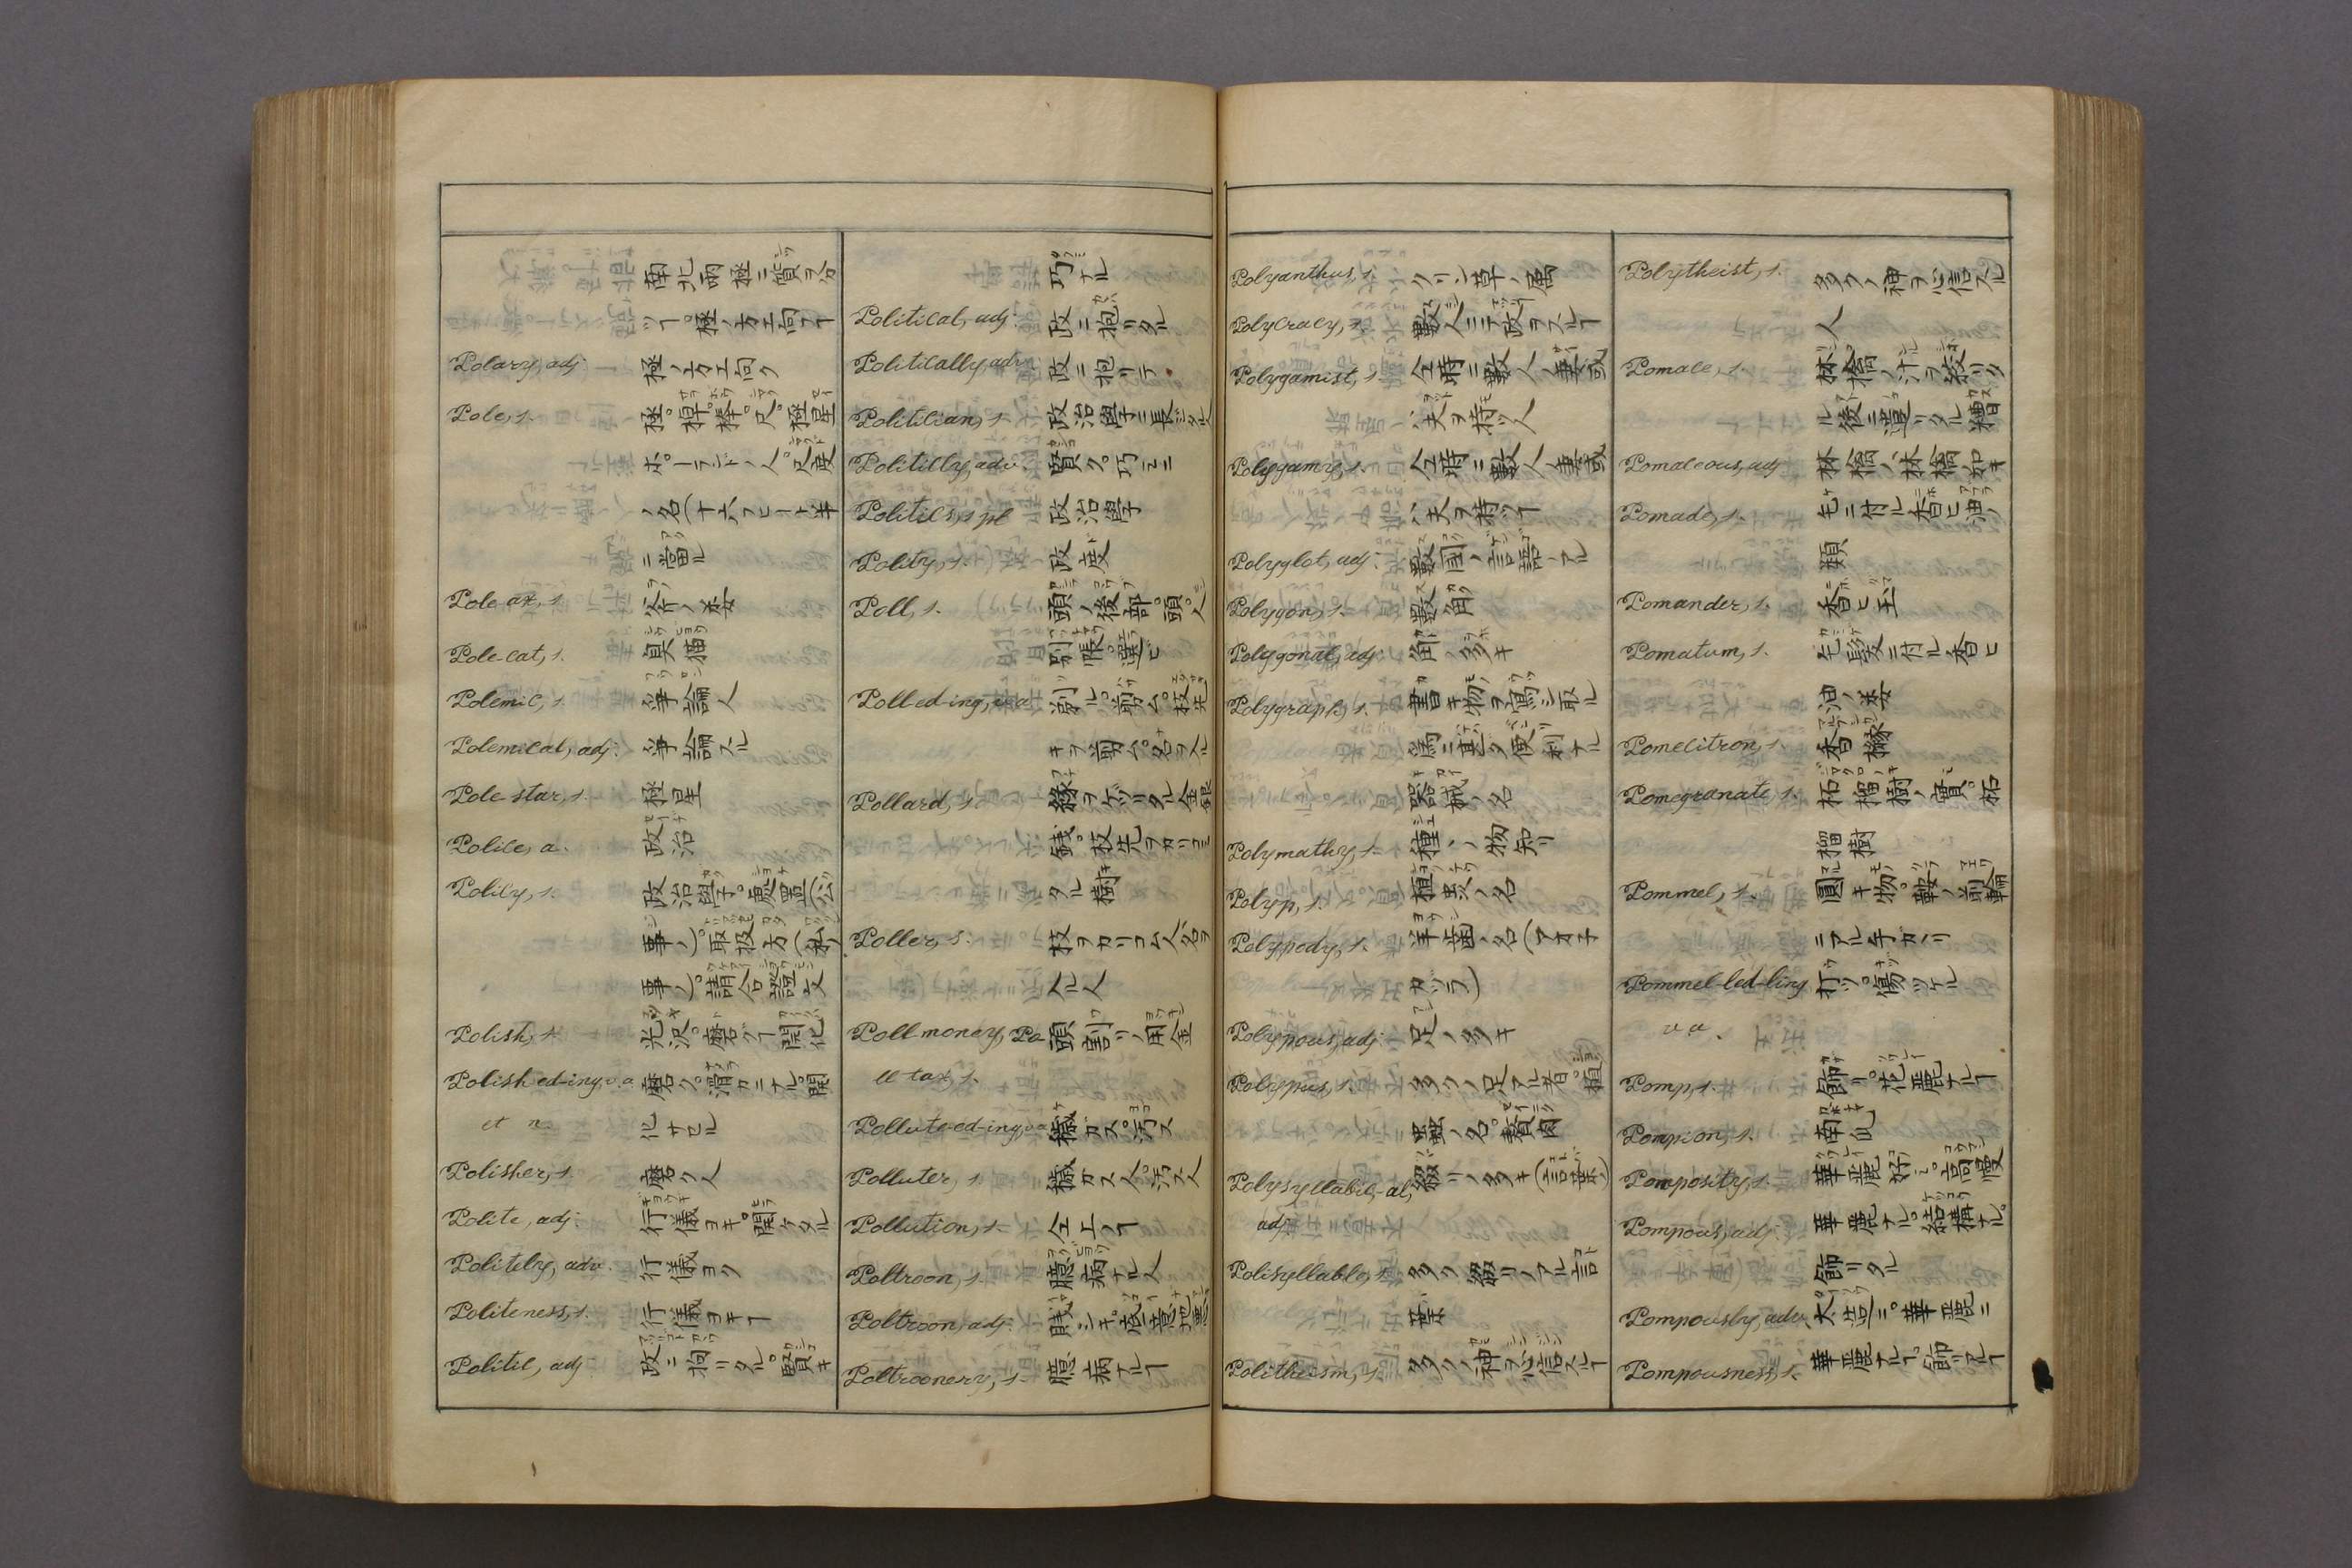 南北両極ニ質ヲ合
ツヿ。極ノ方エ向フヿ
Polary, adj. 極ノ方エ向ク
Pole, s. 極。桿。棒。尺。極星
ポーランドノ人。尺度
ノ名(十六フヒート半
ニ當ル
Pole-ax, s. 斧ノ類
Pole-cat, s. 臭猫
Polemic, s. 争論人
Polemical, adj. 争論スル
Pole-star, s. 極星
Police, a. 政治
Policy, s. 政治學。
事ノ)。取扱方(私ノ
事ノ)。請合證文
Polish, s. 光沢。磨グヿ開化
Polish-ed-ing, v.a. 磨ク。滑カニナル。開
et n. 化サセル
Polisher, s. 磨ク人
Polite, adj. 行儀ヨキ。開ケタル
Politely, adv. 行儀ヨク
Politeness, s. 行儀ヨキヿ
Politic, adj. 政ニ拘リタル。賢キ
巧ナル
Political, adj. 政ニ抱リタル
Politically, adv. 政ニ抱リテ
Politician, s. 政治學ニ長ジタル人
Politicly, adv. 賢ク。巧ミニ
Politics, s. pl 政治學
Polity, s. 政度
Poll, s. 頭ノ後部。頭。人
別帳。選ビ
Poll-ed-ing, v.a. 剃ル。剪ム。枝先
キヲ剪ム。名ヲスル
Pollard, s. 縁ヲケヅリタル金銀
銭。枝先ヲカリコミ
タル樹
Poller, s. 枝ヲカリコム人。名ヲ
ル人
Poll money, Po 頭割リノ用金
ll tax, s.
Pollute-ed-ing, v.a. 穢ガス。汚ス
Polluter, s. 穢ガス人。汚ス人
Pollution, s. 仝上ヿ
Poltroon, s. 臆病ナル人
Poltroon, adj. 賤シキ。底意地悪
Poltroonery, s. 臆病ナルヿ
Polyanthus, s. クリン草ノ属
Polycracy, s. 數人ニテ政ヲスルヿ
Polygamist, s. 仝時ニ數人ノ妻或
ハ夫ヲ持ツ人
Polygamy, s. 仝時ニ數人ノ妻或
ハ夫ヲ持ツヿ
Polyglot, adj. 數國ノ言語ノアル
Polygon, s. 數角
Polygonal, adj. 角ノ多キ
Polygraph, s. 書キ物ヲ寫シ取ル
爲ニ甚タ便利ナル
器械ノ名
Polymathy, s. 種々ノ物知リ
Polyp, s. 植虫ノ名
Polypody, s. 羊歯ノ名(アオ子
カヅラ)
Polypous, adj. 足ノ多キ
Polypus, s. 多クノ足アル者。植
蟲ノ名。贅肉
Polysyllabic-al, 綴リノ多キ(言葉ノ)
adj.
Polisyllable, s. 多クノ綴リノアル言
葉
Politheism, s. 多クノ神ヲ信スルヿ
Polytheist, s. 多クノ神ヲ信スル
人
Pomace, s. 林檎ノ汁ヲ絞リタ
ル後ニ遺リタル糟
Pomaceous, adj. 林檎ノ。林檎ノ如キ
Pomade, s. 毛ニ付ル香ヒ油ノ
類
Pomander, s. 香ヒ玉
Pomatum, s. 毛髪ニ付ル香ヒ
油ノ類
Pomecitron, s. 香櫞
Pomegranate, s. 柘榴樹ノ實。柘
榴樹
Pommel, s. 圓キ物。鞍ノ前輪
ニアル手ガヽリ
Pommel-led-ling 打ツ。傷ツケル
v a.
Pomp, s. 飾リ。花麗ナルヿ
Pompion, s. 南瓜
Pomposity, s. 華麗好ミ。高慢
Pompous, adj. 華麗ナル。結構ナル。
飾リタル
Pompously, adv. 大造ニ。華麗ニ
Pompousness, s. 華麗ナルヿ。飾ツアルヿ